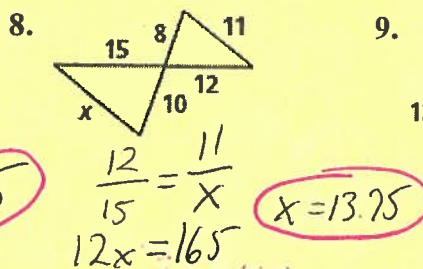 8.
9.
8
11
15
12
x
10
12/15 = 11/x
x = 13.75
12x = 165